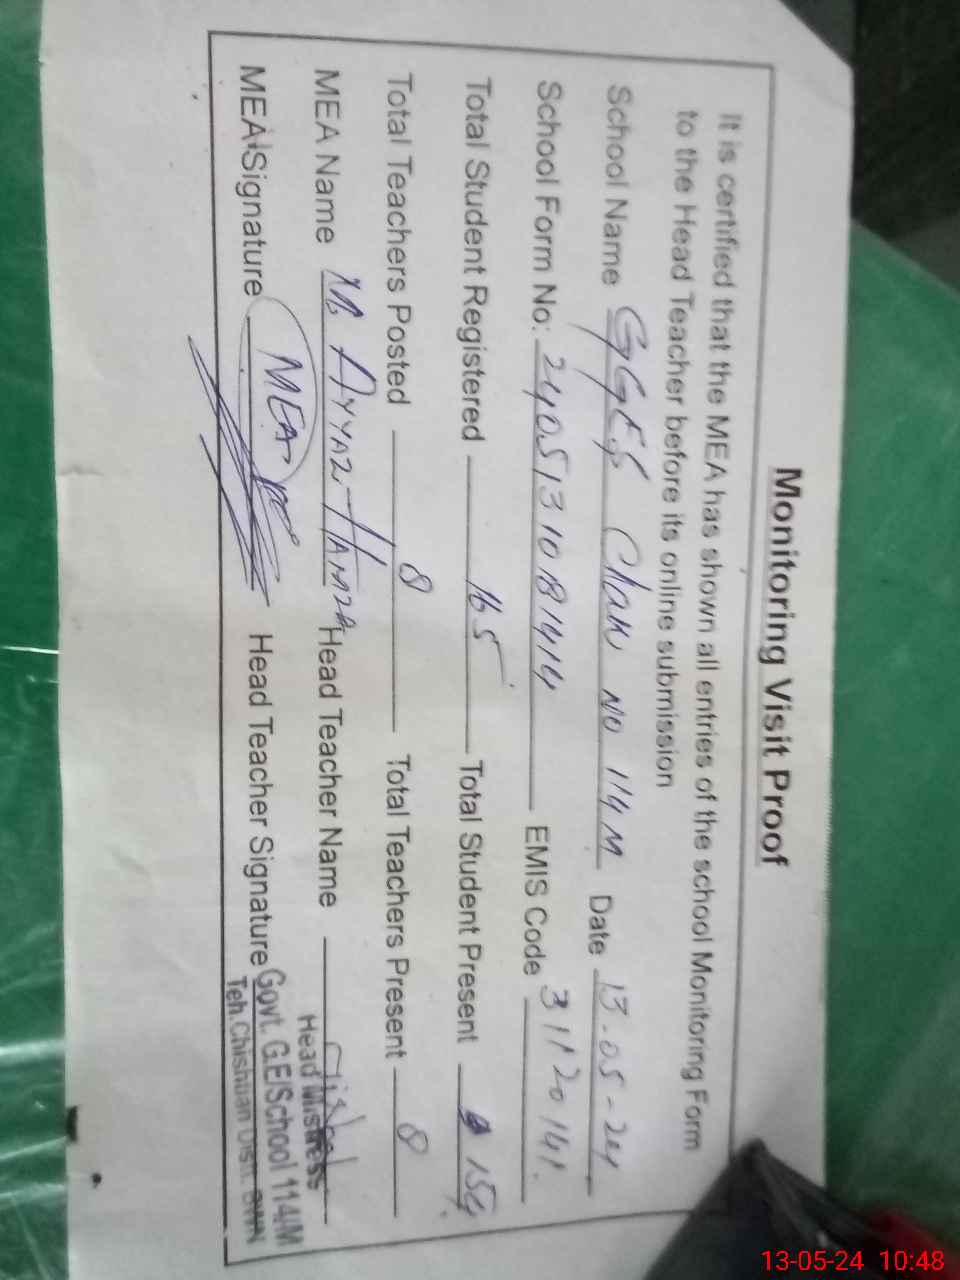 Monitoring Visit Proof
It is certified that the MEA has shown all entries of the school Monitoring Form
to the Head Teacher before its online submission
School Name GGES Chak NO 114M Date 13.05-24
School Form No: 2405131081414 EMIS Code 31120141.
Total Student Registered 165 Total Student Present 154
Total Teachers Posted 8 Total Teachers Present 8
MEA Name M. AYYAZ HAMZA Head Teacher Name
MEA Signature MEA Head Teacher Signature
Head Mistress
Govt. G.E/School 114/M
Teh. Chishtian Distt. BWN
13-05-24 10:48